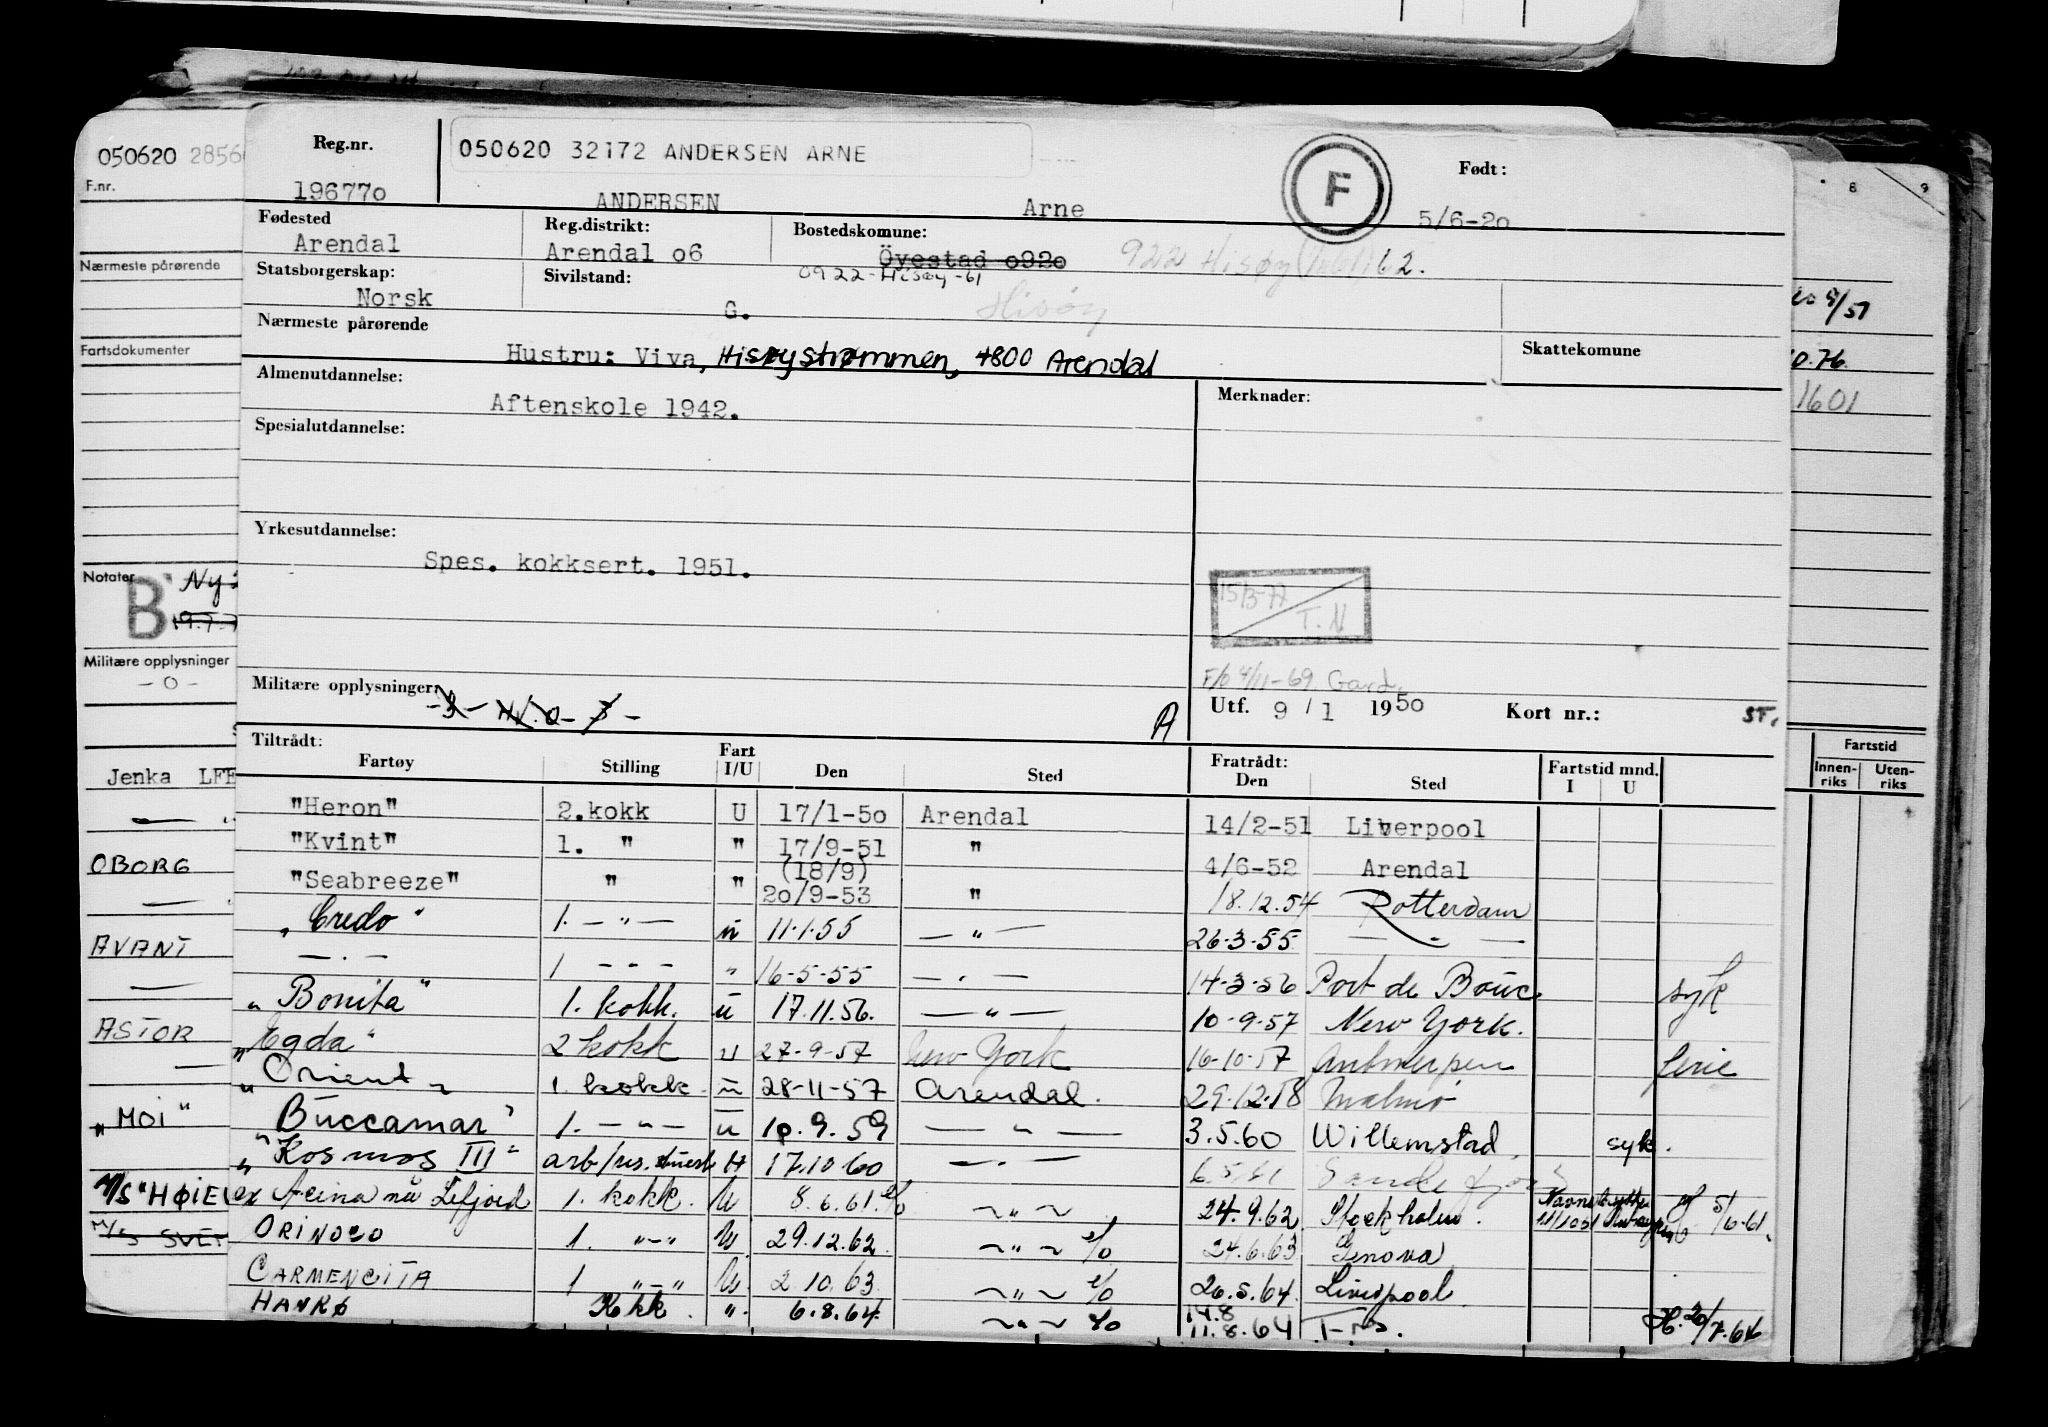 Reg.nr. 050620 32172 ANDERSEN ARNE F Født:
196770 ANDERSEN Arne 5/6-20
Fødested Reg.distrikt: Bostedskomune:
Arendal Arendal 06 Övestad 0920 922 Hisøy 62.
Statsborgerskap: Sivilstand: 0922-Hisøy-61
Norsk G. Hisøy
Nærmeste pårørende Skattekomune
Hustru: Viva, Hisøystrømmen, 4800 Arendal
Almenutdannelse: Merknader:
Aftenskole 1942.
Spesialutdannelse:
Yrkesutdannelse:
Spes. kokksert. 1951.
15/3-77
T.N
F/O 4/11-69 Gard.
Militære opplysninger: A
Utf. 9/1 1950 Kort nr.: ST.
Tiltrådt: Fratrådt:
Fartøy Stilling Fart I/U Den Sted Den Sted Fartstid mnd. I U
"Heron" 2.kokk U 17/1-50 Arendal 14/2-51 Liverpool
"Kvint" 1. " " 17/9-51 (18/9) " 4/6-52 Arendal
"Seabreeze" " " 20/9-53 " 18.12.54 Rotterdam
"Credo" 1. -"- u 11.1.55 -"- 26.3.55 -"-
-"- 1 --- " 16-5-55 -"- 14-3-56 Port de Bouc. syk
"Bonita" 1. kokk. u 17.11.56. -"- 10-9-57 New York.
"Egda" 2 kokk u 27-9-57 New York 16-10-57 Antwerpen ferie
"Orient" 1. kokk. u 28-11-57 Arendal. 29.12.58 Malmø
"Buccamar" 1. -"- u 10.9.59 -"- 3.5.60 Willemstad syk.
"Kosmos III" H 17.10.60 -"- 6.5.61 Sandefjord
ex Acina nå Lifjord 1. kokk. U 8.6.61 -"- 24.9.62 Stockholm. 5/6-61.
ORINOCO 1. "-" U 29.12.62. -"- 24.6.63 Genova
CARMENCITA 1 "-" U 2.10.63 -"- 20.5.64. Liverpool
HANKØ Kokk. ". 6.8.64. -"- 14.8 11.8.64 20/7.64
050620
F.nr.
Nærmeste pårørende
Fartsdokumenter
Notater
B Ny
Militære opplysninger
- O -
Jenka
OBORG
AVANT
ASTOR
"MOI"
M/S "HØIE
M/S SVE
8 9
8/51
0.76
1601
Fartstid
Innen-riks Uten-riks